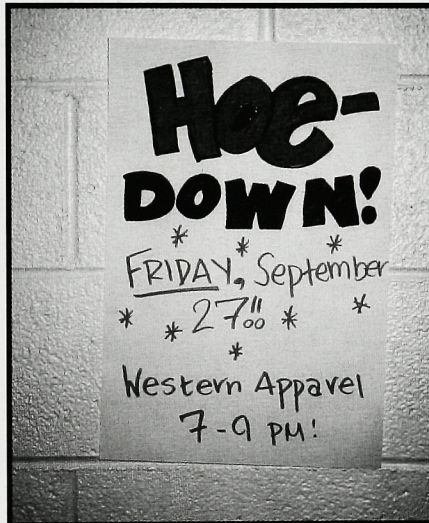 Hoe-
DOWN!
FRIDAY, September
27!!
Western Apparel
7-9 PM!